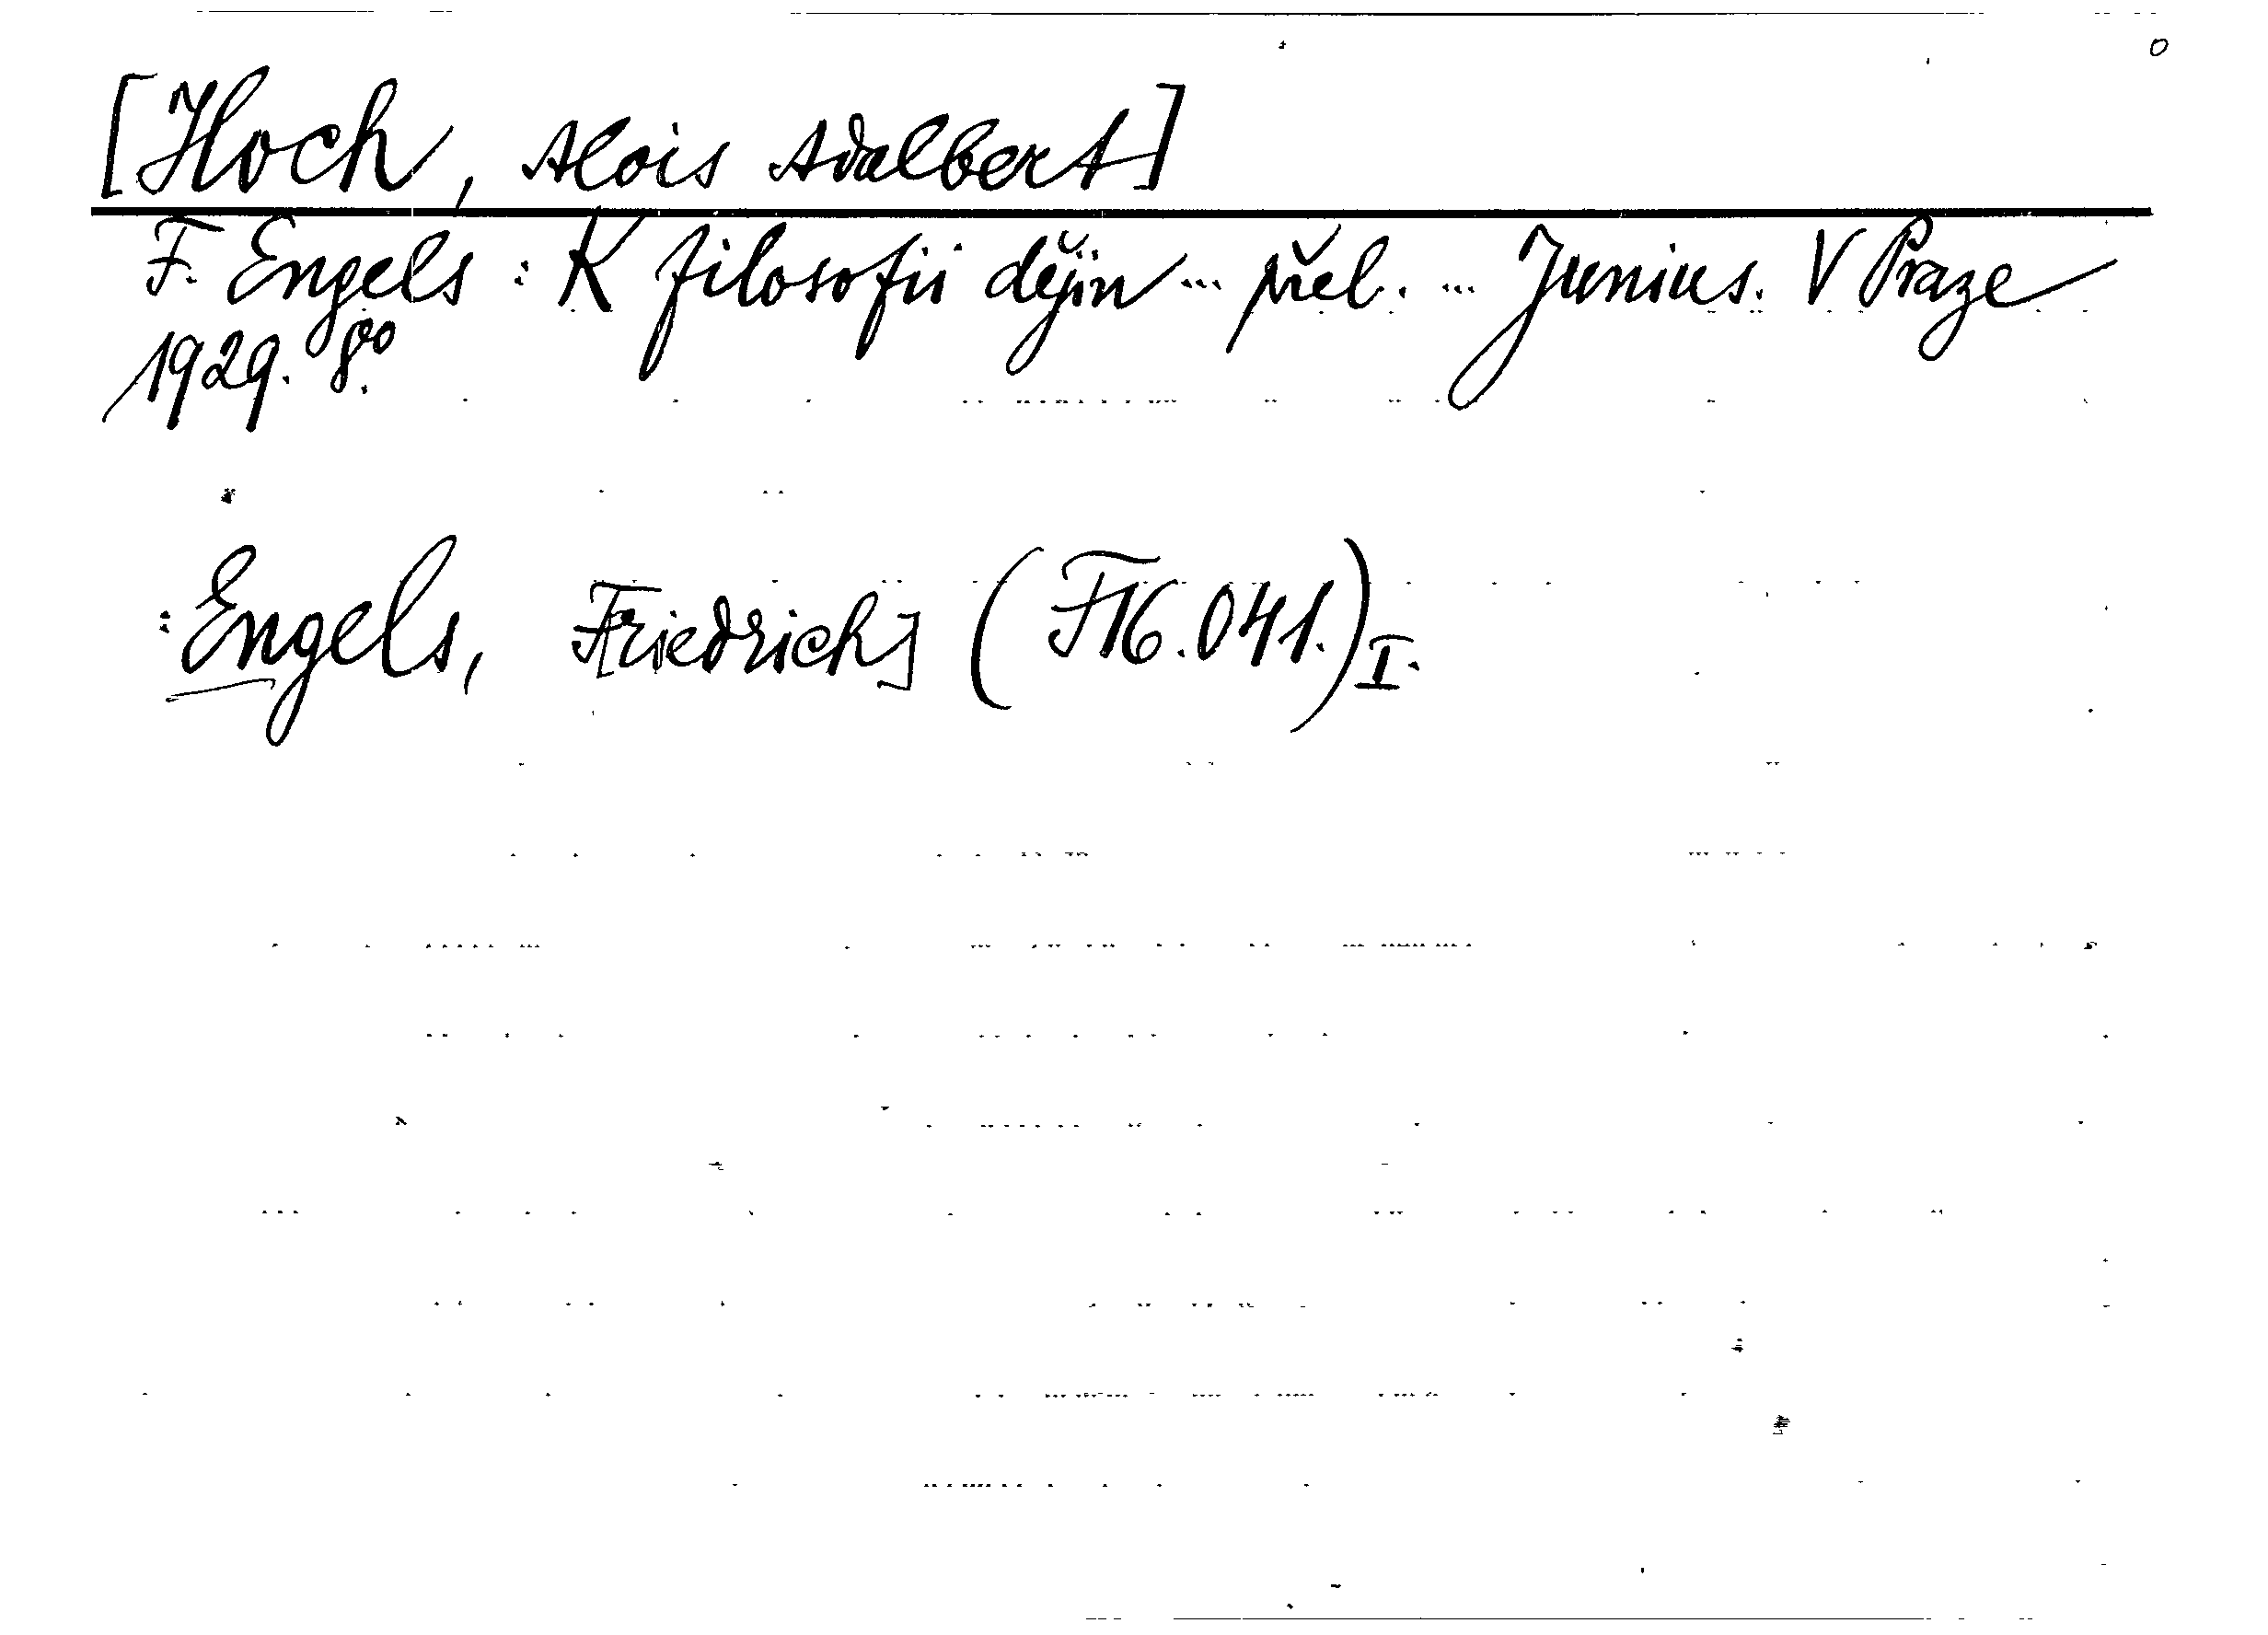 [Hoch, Alois Adalbert]
F. Engels: K filosofii dějin ... přel. ... Junius. V Praze
1929. 8°°.
: Engels, F[riedrich] (F16.041.) I.